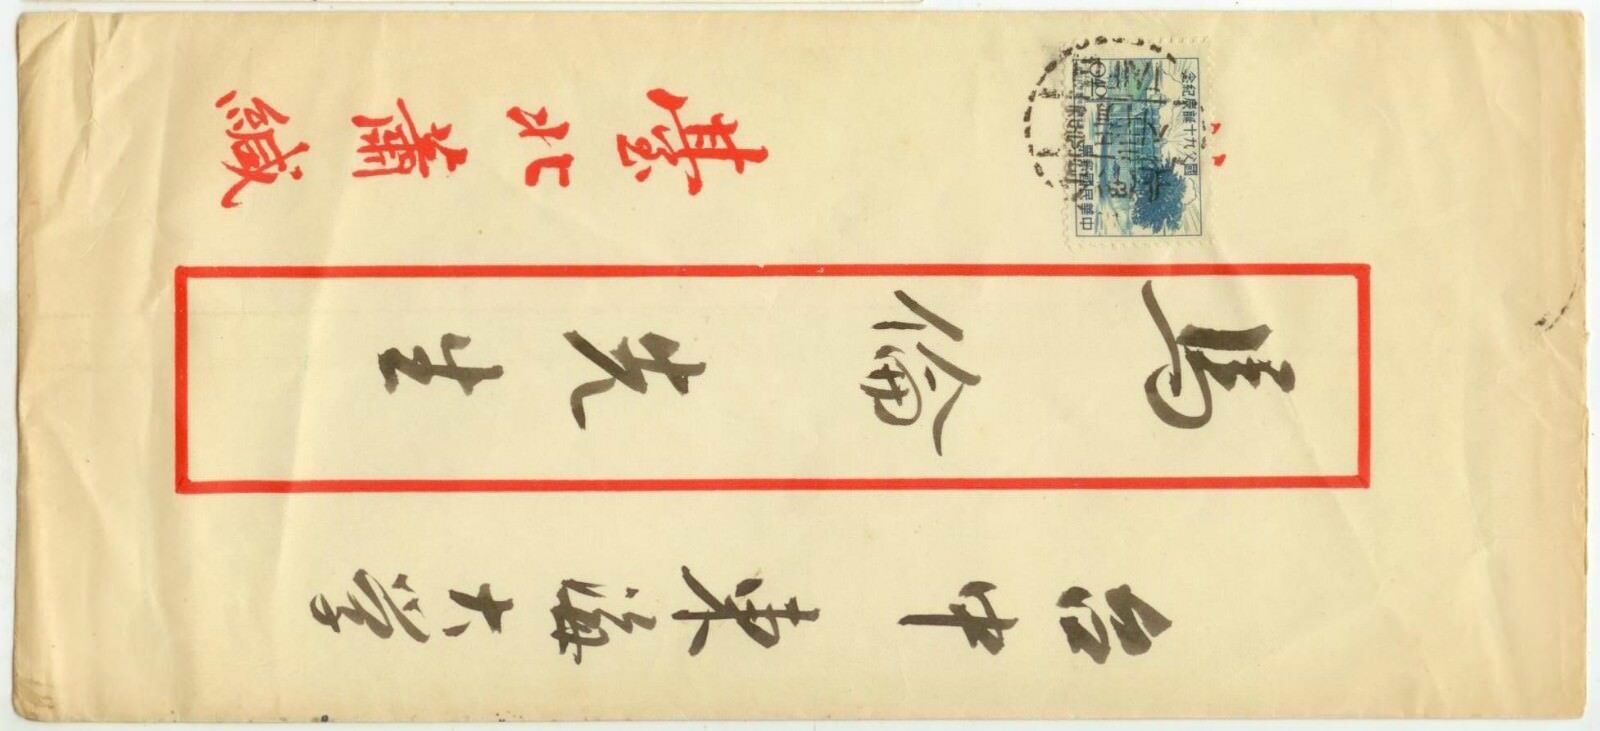 台中東海大學
馬倫先生
臺北蕭緘
國父九十誕辰紀念
中華民國郵票